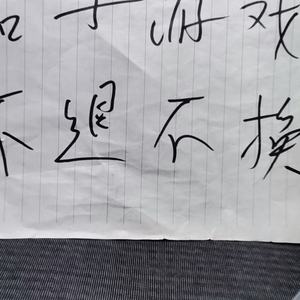 游戏
不退不换